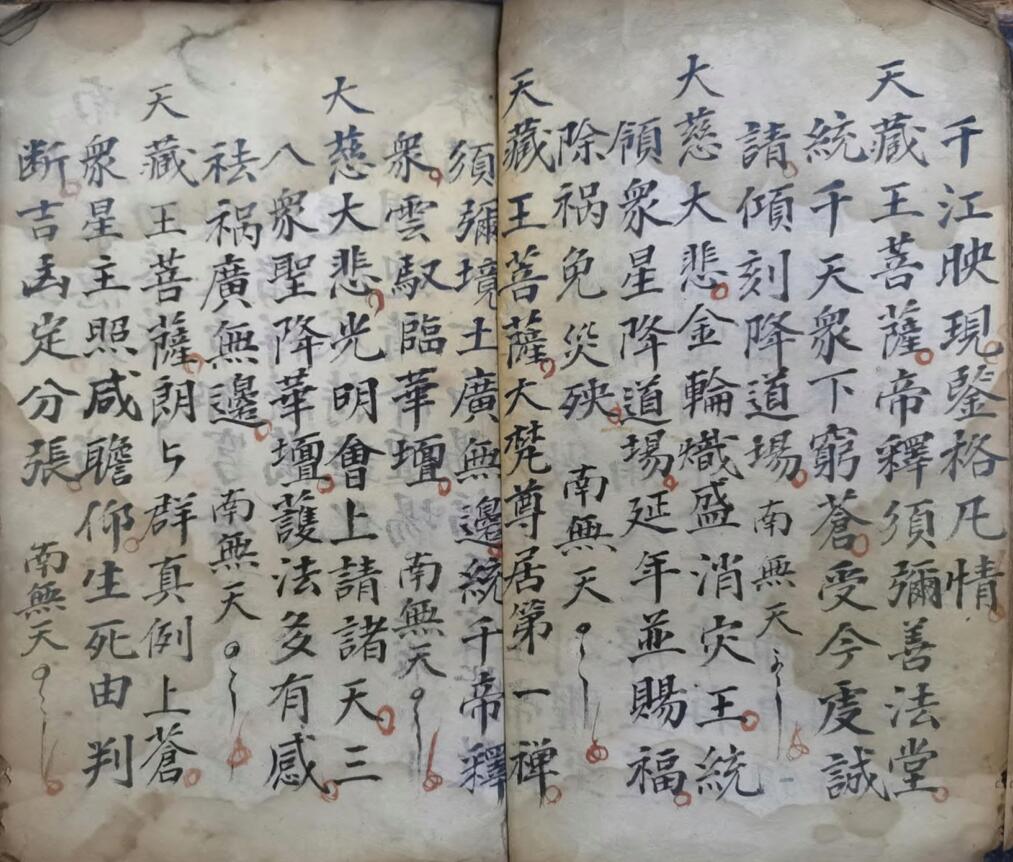 千江映現鋻格凡情
天藏王菩薩帝釋須彌善法堂
統千天衆下窮蒼受今虔誠
請傾刻降道場南無天
大慈大悲金輪熾盛消灾王統
領衆星降道場延年並賜福
除禍免災殃南無天
天藏王菩薩大梵尊居第一禅
須彌境土廣無邊統千帝釋
衆雲馭臨華壇南無天
大慈大悲光明會上請諸天三
八衆聖降華壇護法多有感
祛禍廣無邊南無天
天藏王菩薩朗ㄣ群真例上蒼
衆星主照咸瞻仰生死由判
断吉凶定分張南無天